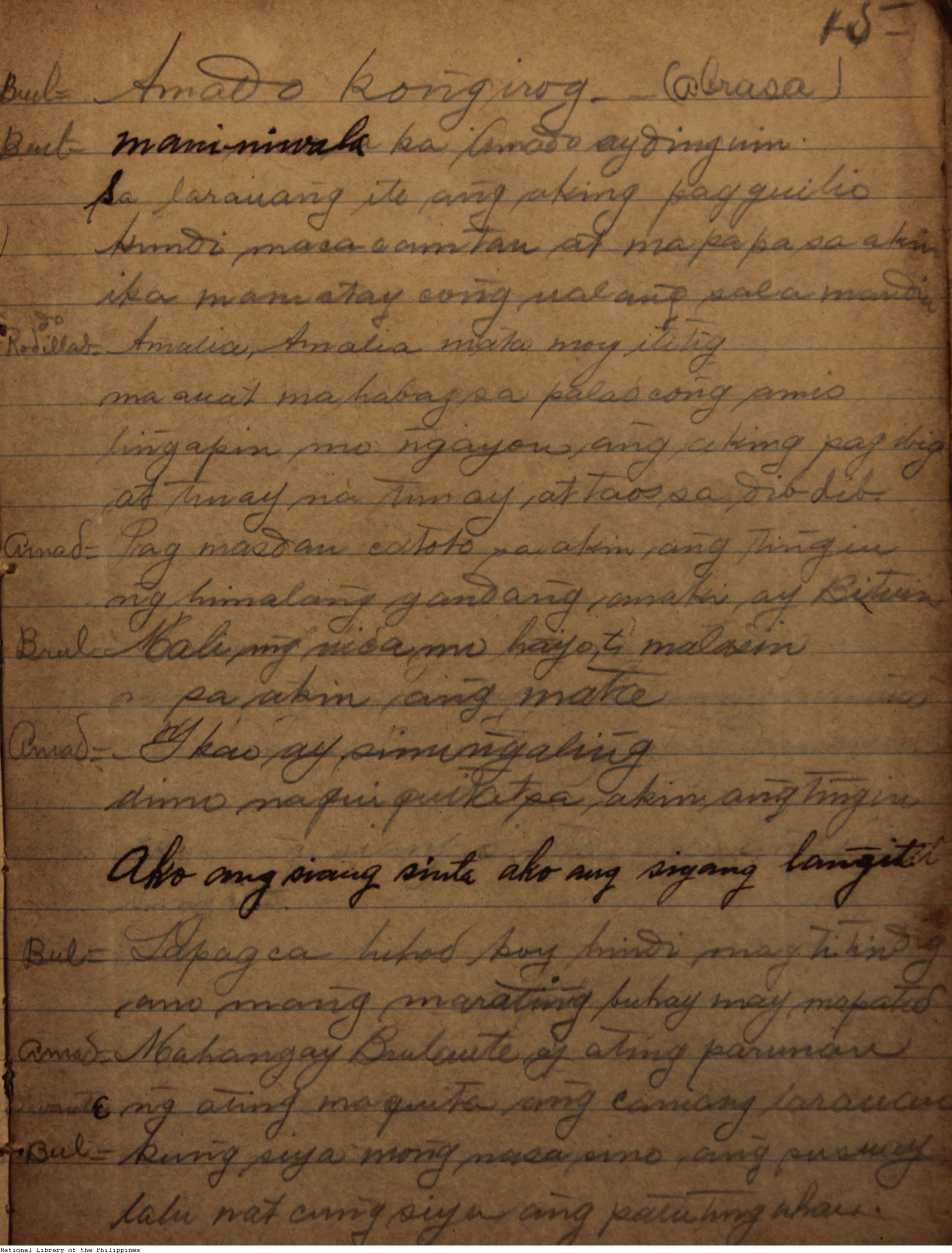 15-
Brul= Amado kong̃irog - - (abrasa)
Brul- maniniwala ka Amado ay dinguin
Sa larauang̃ ito ang̃ aking pagguilio
kundi macacamtan at mapapasa akin
ika mamatay cong̃ ualang̃ sala mandin
do
Rodillas= Amalia, Amalia mata moy ititig
maauat mahabag sa palad cong̃ amis
ling̃apin mo ng̃ayon, ang̃ aking pag ibig
at tunay na tunay at taos sa dib-dib-
Amad= Pag masdan catoto sa akin ang̃ ting̃in
ng̃ himalang̃ gandang̃, anaki ay Bituin
Brul- Mali ang̃ wica mo hayo,t malasin
sa akin ang̃ mata
Amad=- Ikao ay sinung̃aling̃
dimo naquiquitat sa akin, ang̃ ting̃in
Ako ang siang sinta ako ang siyang lang̃it
Bul= Sa pagca luhod koy hindi mag titindig
ano mang̃ marating̃ buhay may mapatid
Amad= Mahang̃ay Brulante ay ating parunan
ng̃ ating maquita ang̃ caniang larauan
Bul= kung̃ siya mong̃ nasa sino, ang̃ susuay
lalu nat cung̃ siya ang̃ patutung̃uhan.
National Library of the Philippines